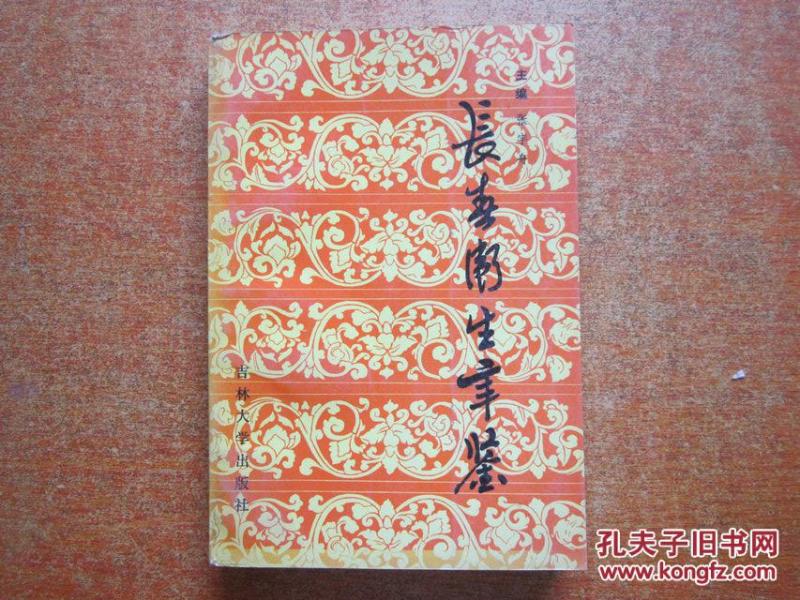 主编 张
長春衛生年鉴
吉林大学出版社
孔夫子旧书网
www.kongfz.com